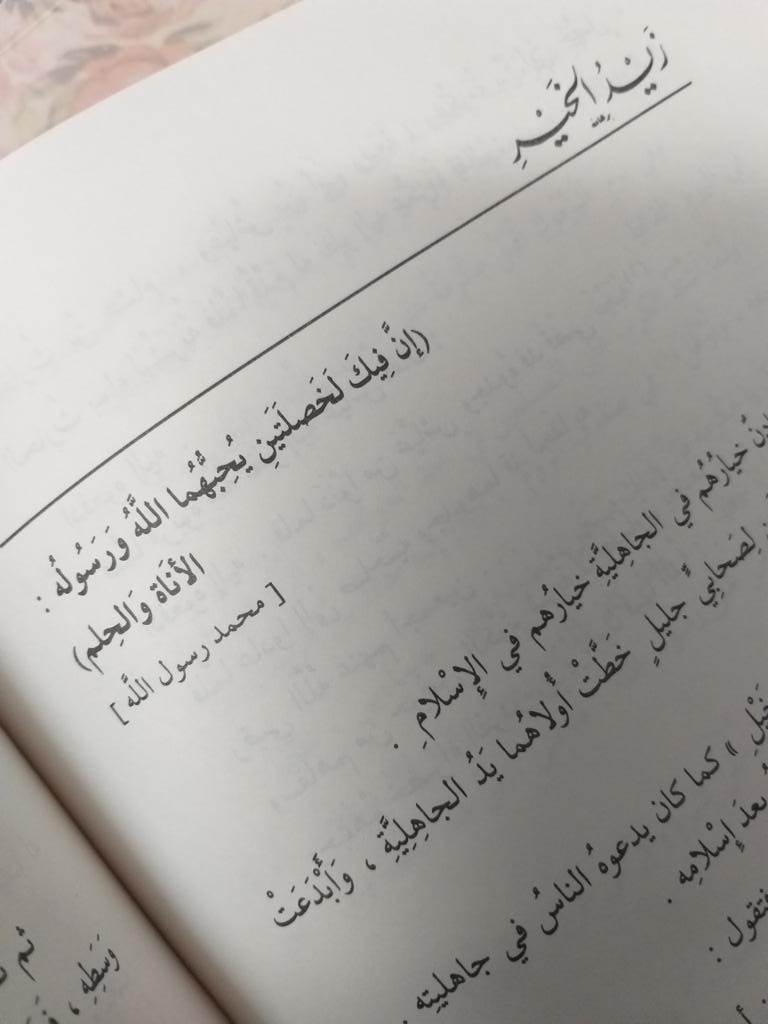 زَيْدُ الخَيْرِ
(إنَّ فِيكَ لَخَصلَتَينِ يُحِبُّهُما اللَّهُ وَرَسُولُه :
الأنَاة وَالحِلم)
[ محمد رسول اللَّه ]
خيارُهُم في الجاهِليَّةِ خيارُهم في الإِسْلامِ .
لِصَحابيٍّ جليلٍ خَطَّتْ أُولاهُما يَدُ الجاهِلِيَّةِ ، وَأَبْدَعَتْ
» كما كان يدعوهُ الناسُ في جاهليتِه .
بَعدَ إسْلامِه .
فتقول :
ثم
وَسَطِهِ ،